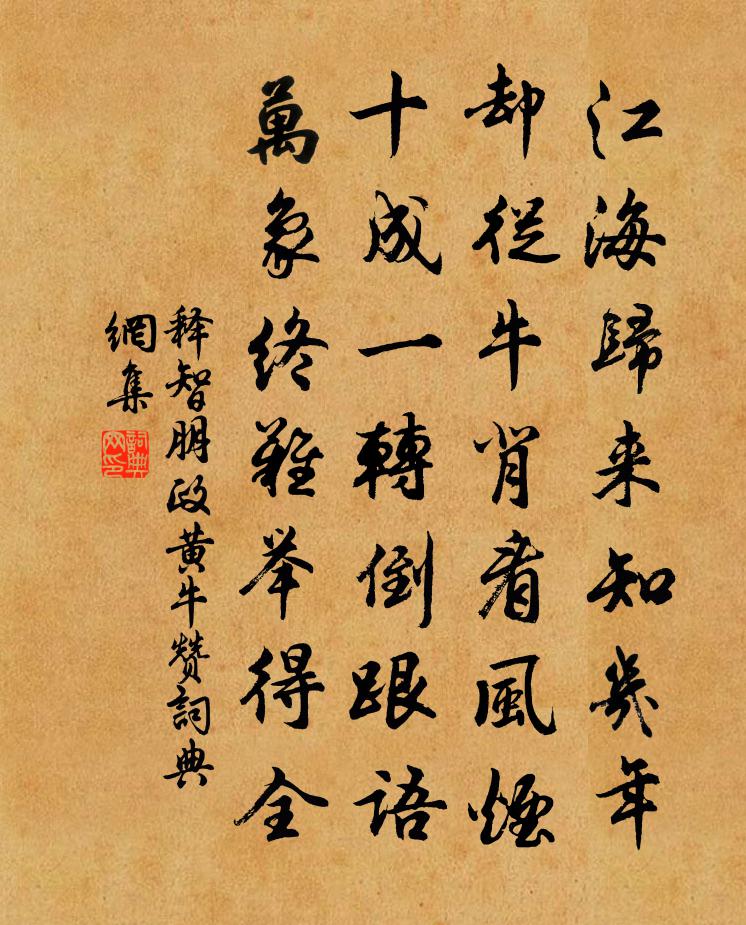 江海歸来知幾年
却從牛背看風煙
十成一轉倒跟語
萬象終難举得全
释智朋政黄牛赞詞典
網集
詞典网印